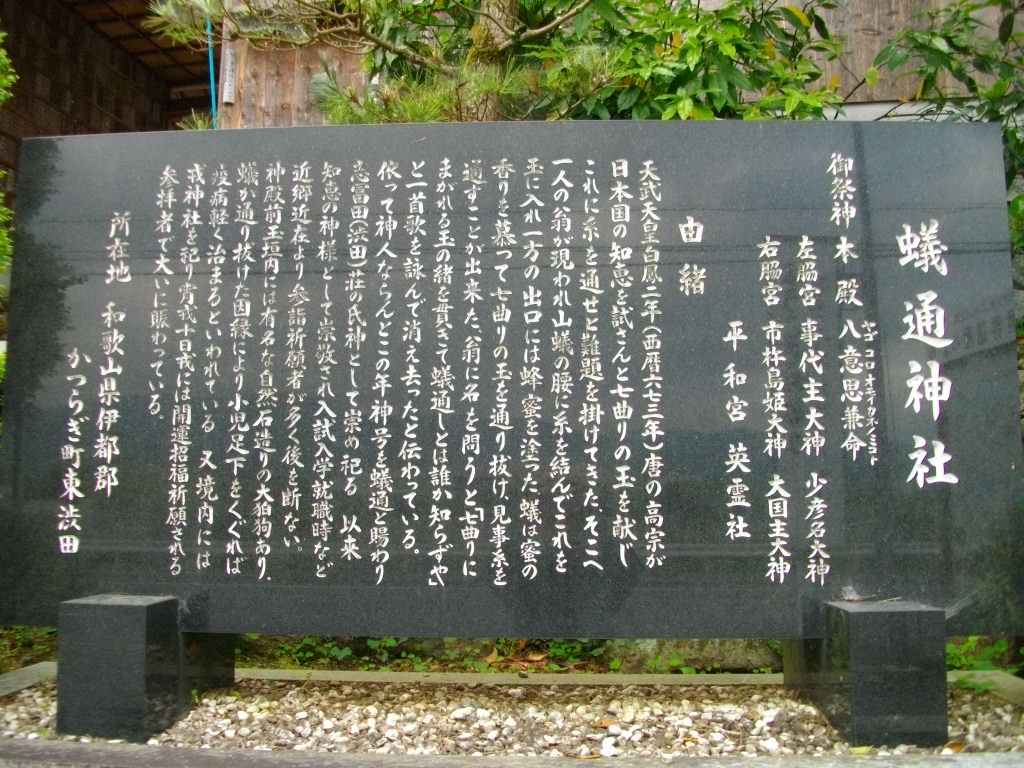 蟻通神社
御祭神 本殿 八意思兼命
ヤゴコロオモイカネノミコト
左脇宮 事代主大神 少彦名大神
右脇宮 市杵島姫大神 大国主大神
平和宮 英霊社
由緒
天武天皇白鳳二年(西暦六七三年)唐の高宗が
日本国の知恵を試さんと七曲りの玉を献じ
これに糸を通せと難題を掛けてきた、そこへ
一人の翁が現われ山蟻の腰に糸を結んでこれを
玉に入れ一方の出口には蜂蜜を塗った蟻は蜜の
香りを慕って七曲りの玉を通り抜け、見事糸を
通すことが出来た、翁に名を問うと「七曲りに
まがれる玉の緒を貫きて蟻通しとは誰か知らずや」
と一首歌を詠んで消え去ったと伝わっている。
依って神人ならんとこの年神号を蟻通と賜わり
志富田(渋田)荘の氏神として崇め祀る 以来
知恵の神様として崇敬され入試入学就職時など
近郷近在より参詣祈願者が多く後を断ない。
神殿前玉垣内には有名な自然石造りの大狛狗あり、
蟻が通り抜けた因縁により小児足下をくぐれば
疫病軽く治まるといわれている 又境内には
戎神社を祀り宵戎十日戎には開運招福祈願される
参拝者で大いに賑わっている。
所在地 和歌山県伊都郡
かつらぎ町東渋田